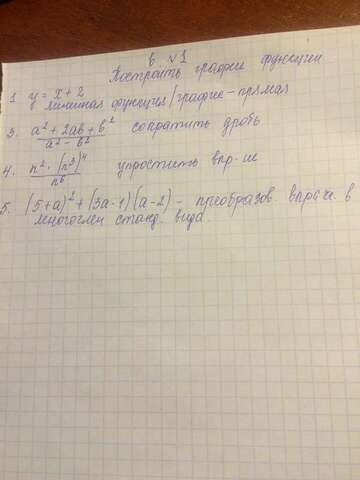 в. №1
Построить график функции
1 y = x + 2
линейная функция/график - прямая
3. a² + 2ab + b² / a² - b² сократить дробь
4. n² · (n³)⁴ / n⁶ упростить выр-ие
5. (5+a)² + (3a-1)(a-2) - преобразов. выраж. в
многочлен станд. вида